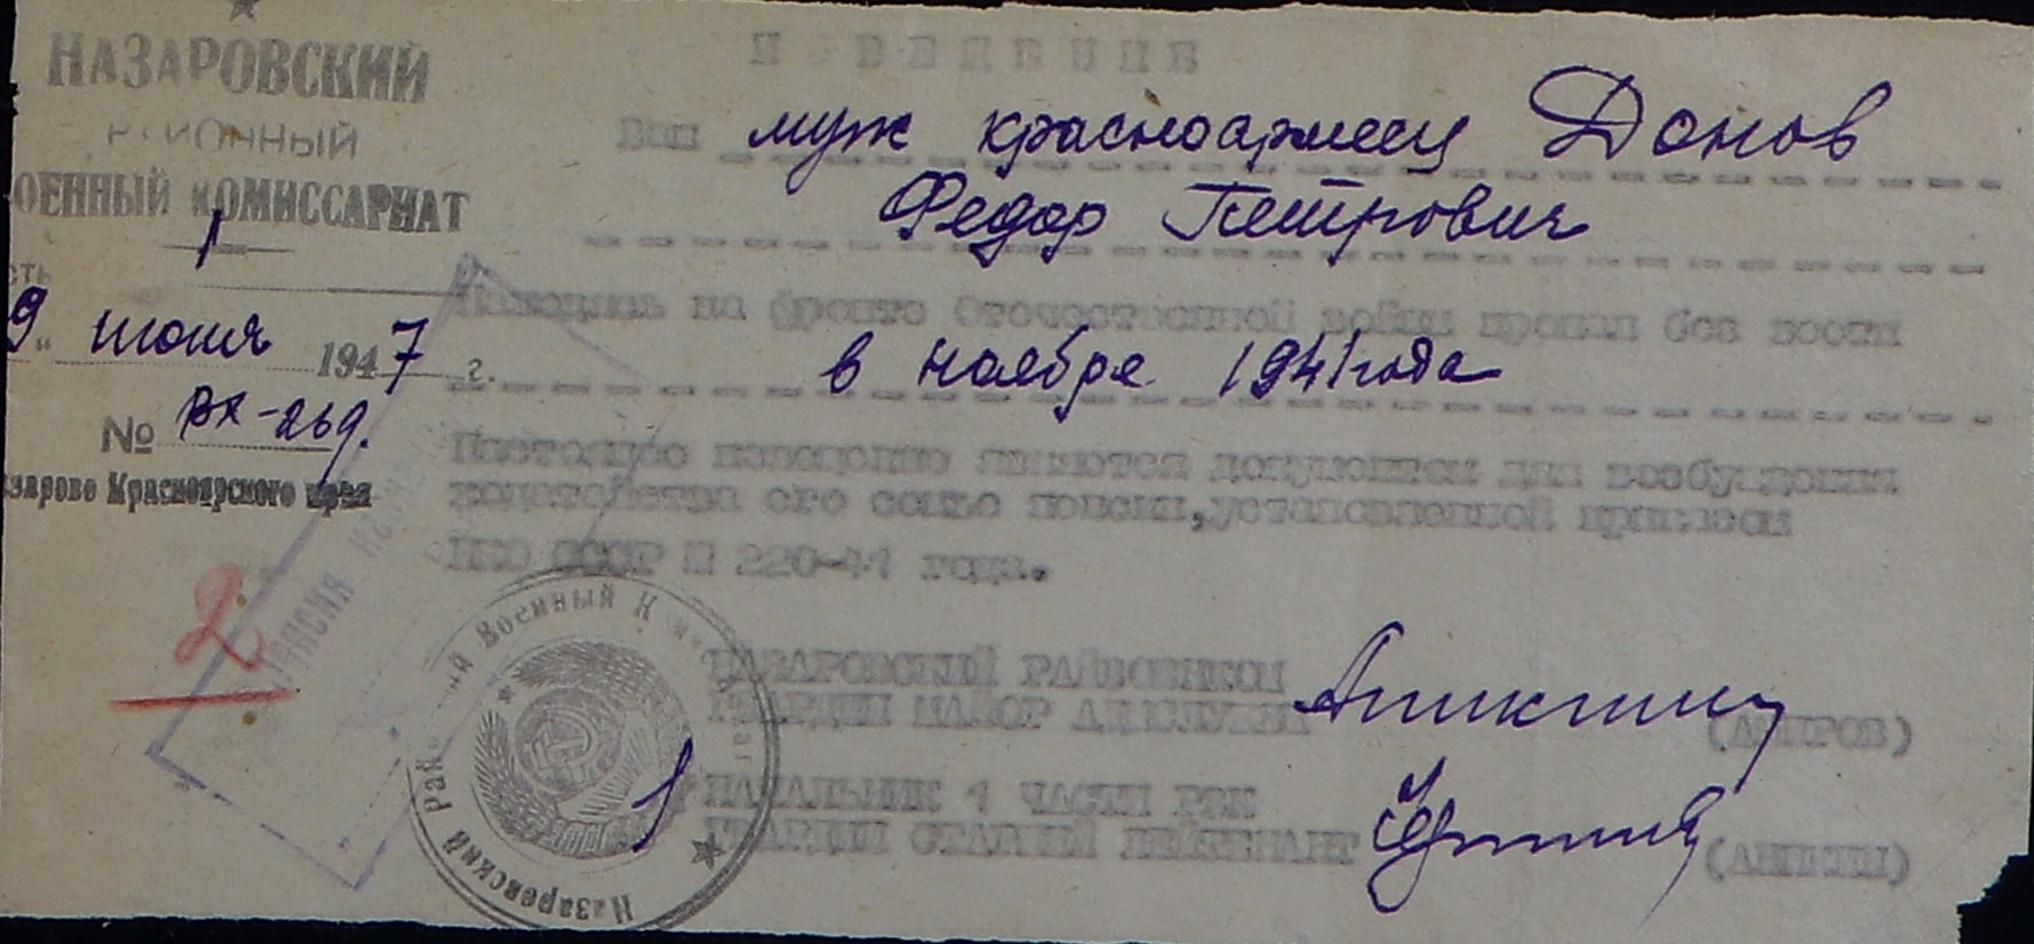 НАЗАРОВСКИЙ
РАЙОННЫЙ
ОЕННЫЙ КОМИССАРИАТ
1
сть
9" июня 1947 г.
№ вх-269.
зарово Красноярского края
2
ИЗВЕЩЕНИЕ
Ваш муж красноармеец Донов
Федор Петрович
Находясь на фронте Отечественной войны пропал без вести
в ноябре 1941 года
Настоящее извещение является документом для возбуждения
ходатайства его семье пенсии, установленной приказом
НКО СССР № 220-41 года.
НАЗАРОВСКИЙ РАЙВОЕНКОМ
ГВАРДИИ МАЙОР АДМ.СЛУЖБЫ
НАЧАЛЬНИК 1 ЧАСТИ РВК
ГВАРДИИ СТАРШИЙ ЛЕЙТЕНАНТ (АНИКИН)
Назаровский Рай й Военный К